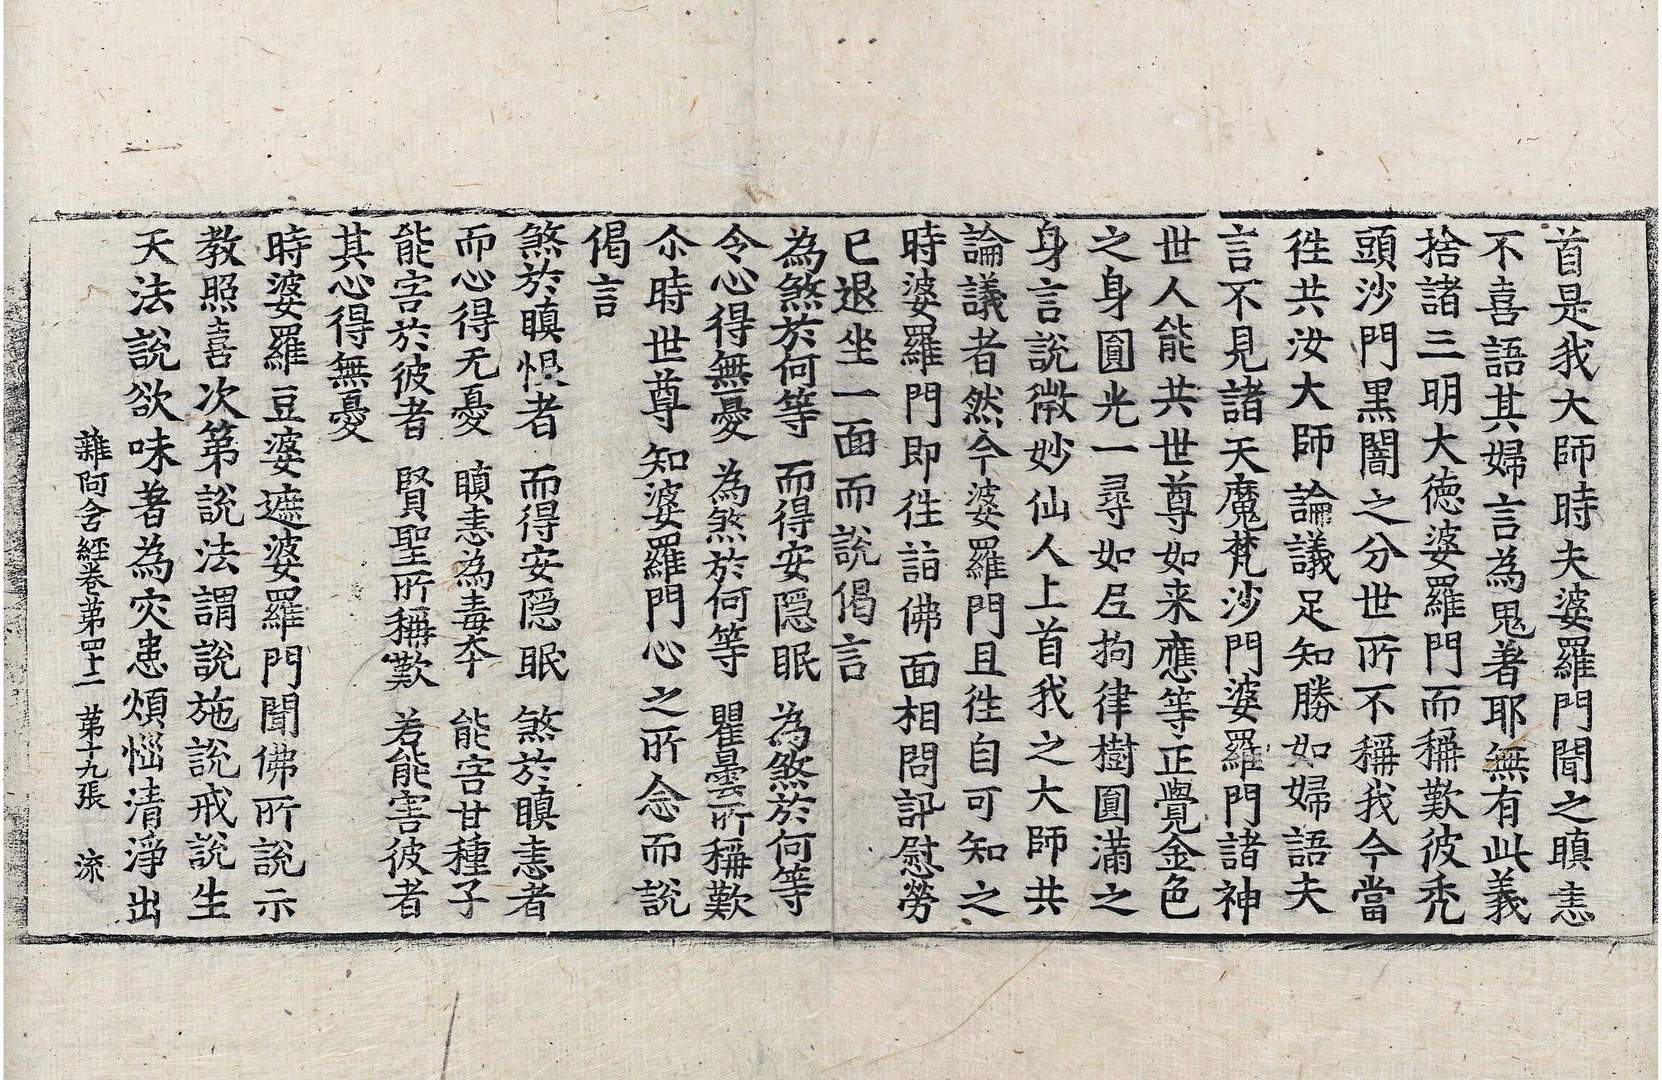 首是我大師時夫婆羅門聞之瞋恚
不喜語其婦言為鬼著耶無有此義
捨諸三明大德婆羅門而稱歎彼禿
頭沙門黑闇之分世所不稱我今當
徃共汝大師論議足知勝如婦語夫
言不見諸天魔梵沙門婆羅門諸神
世人能共世尊如来應等正覺金色
之身圓光一尋如尼拘律樹圓滿之
身言說微妙仙人上首我之大師共
論議者然今婆羅門且徃自可知之
時婆羅門即徃詣佛面相問訊慰勞
已退坐一面而說偈言
為煞於何等　而得安隱眠　為煞於何等
令心得無憂　為煞於何等　瞿曇所稱歎
尒時世尊知婆羅門心之所念而說
偈言
煞於瞋恨者　而得安隱眠　煞於瞋恚者
而心得无憂　瞋恚為毒夲　能害甘種子
能害於彼者　賢聖所稱歎　若能害彼者
其心得無憂
時婆羅豆婆遮婆羅門聞佛所說示
教照喜次第說法謂說施說戒說生
天法說欲味著為灾患煩惱清淨出
雜阿含經卷第四十二　第十九張　流